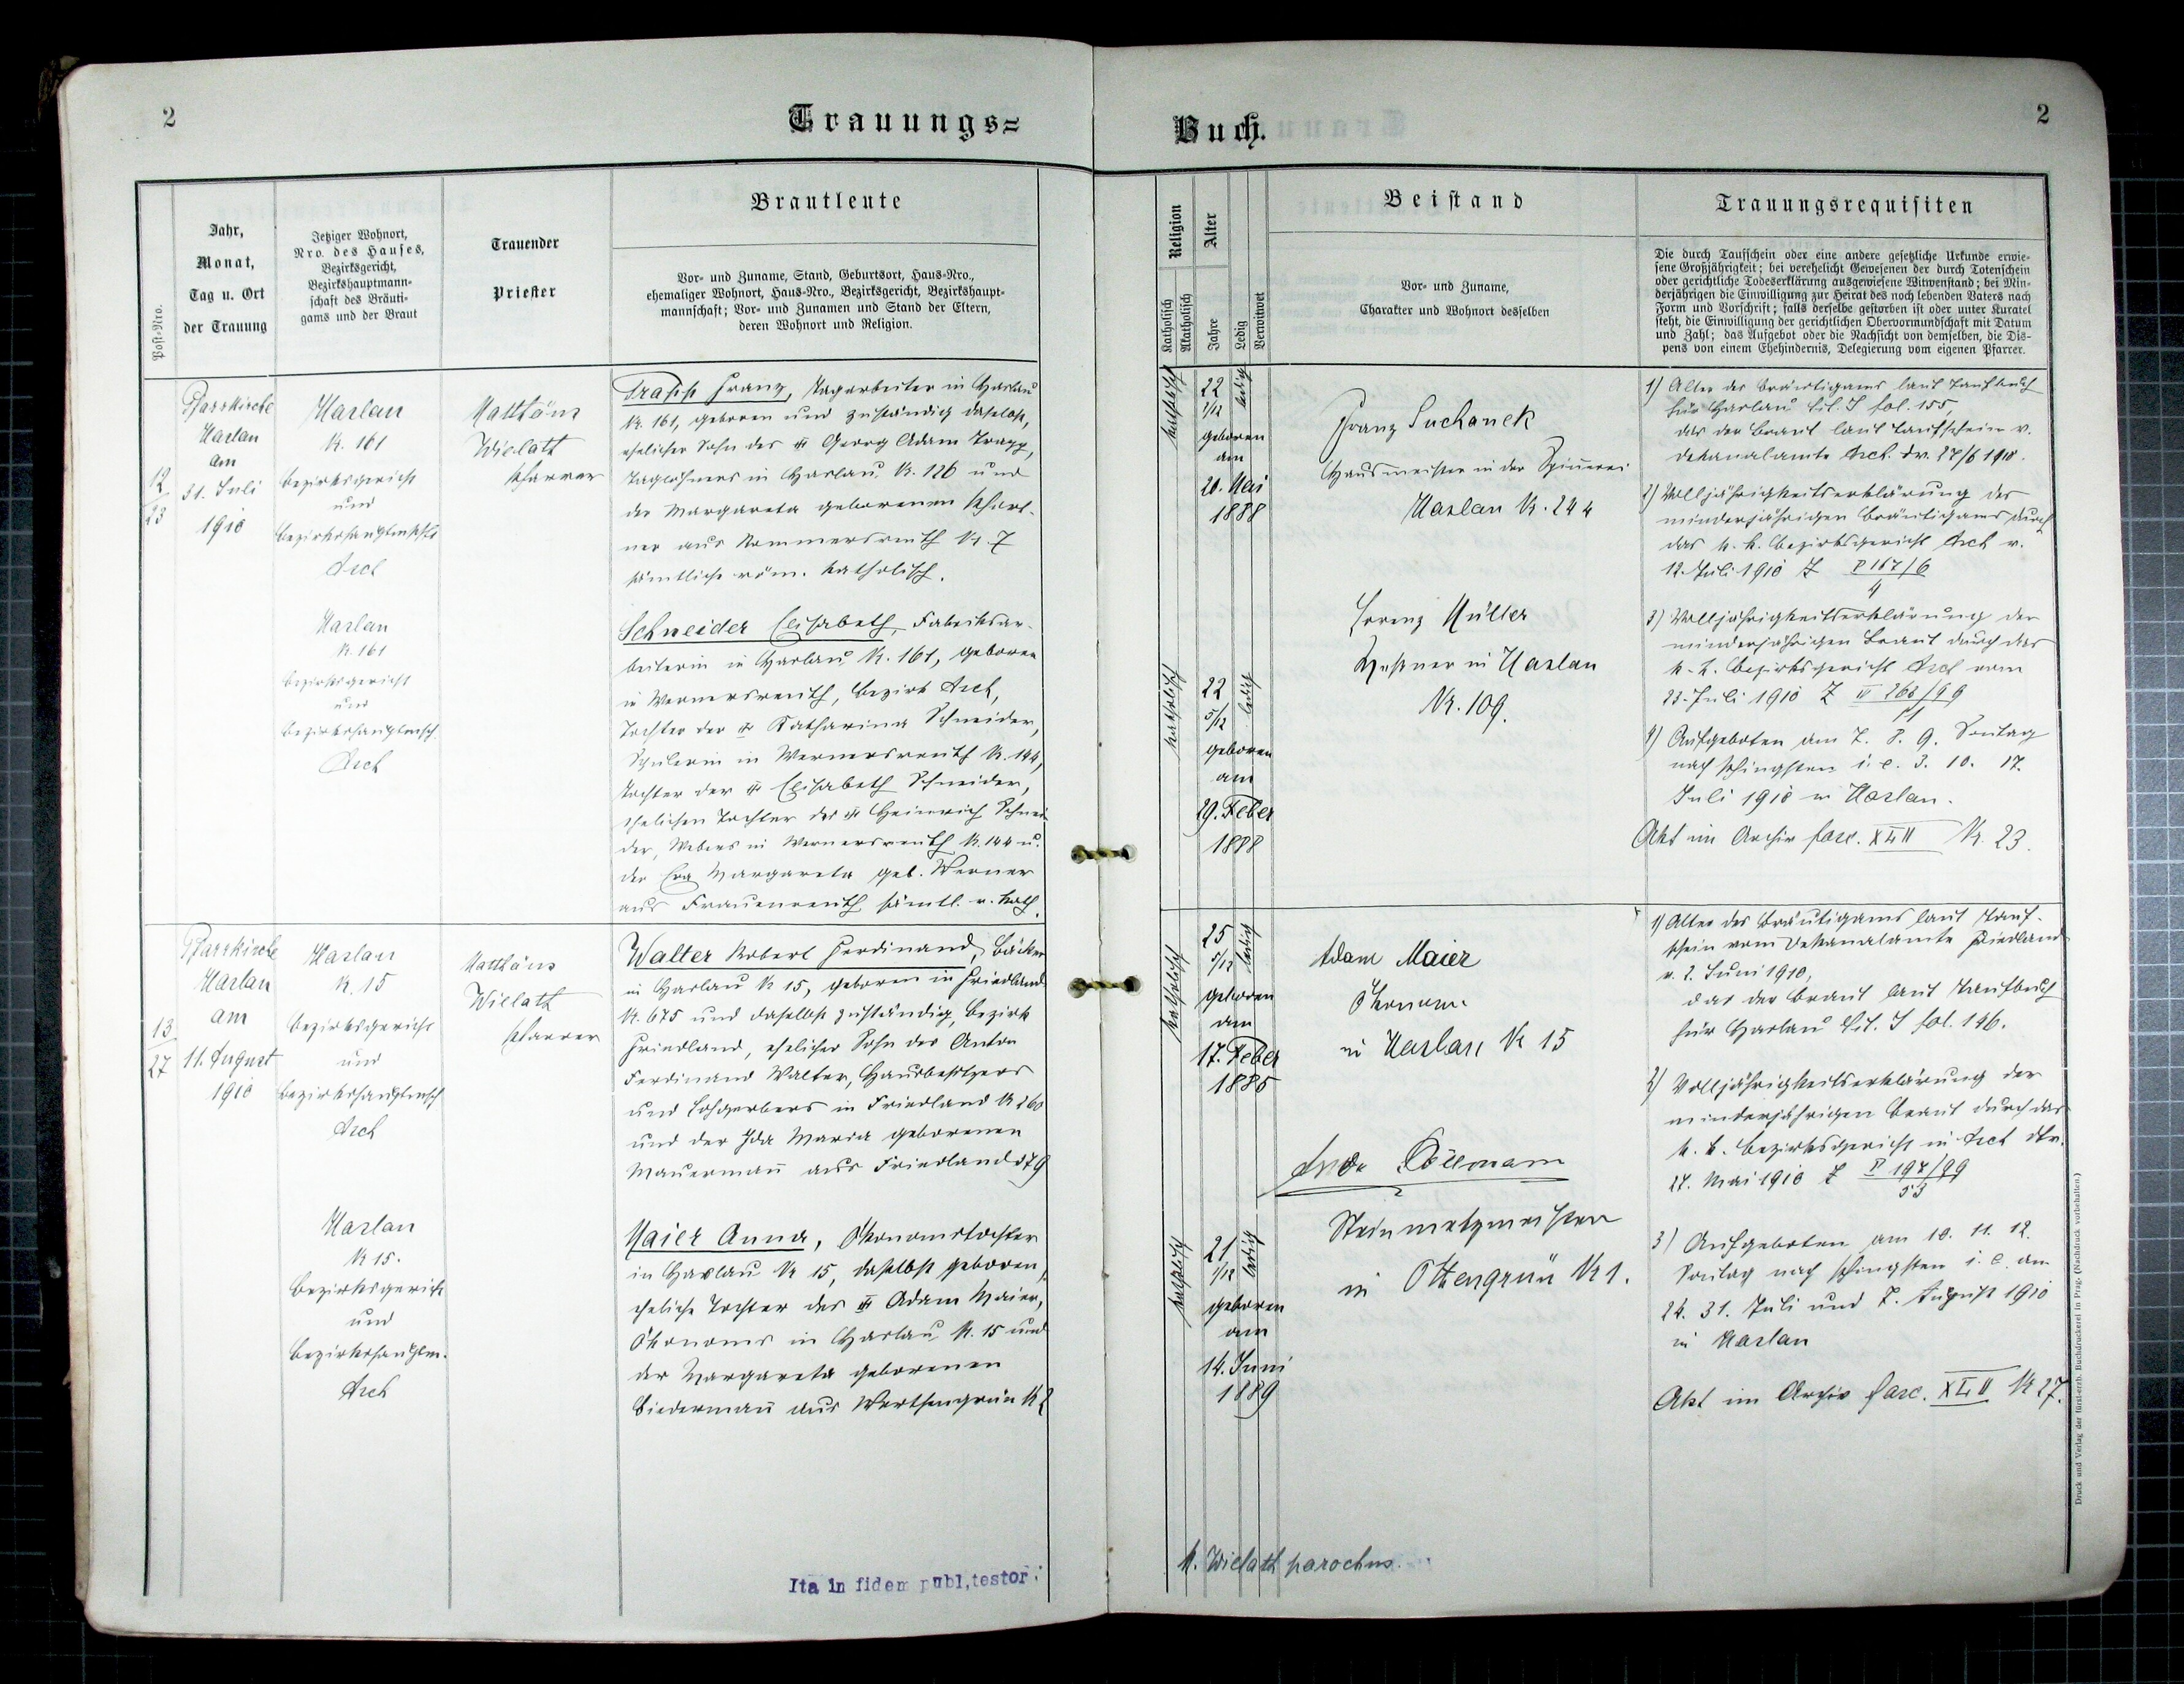 2
Trauungs=
Buch.
2
Post-Nro.
Jahr,
Monat,
Tag u. Ort
der Trauung
Jetziger Wohnort,
Nro. des Hauses,
Bezirksgericht,
Bezirkshauptmann-
schaft des Bräuti-
gams und der Braut
Trauender
Priester
Brautleute
Vor- und Zuname, Stand, Geburtsort, Haus-Nro.,
ehemaliger Wohnort, Haus-Nro., Bezirksgericht, Bezirkshaupt-
mannschaft; Vor- und Zunamen und Stand der Eltern,
deren Wohnort und Religion.
Religion
Katholisch
Akatholisch
Alter
Jahre
Ledig
Verwitwet
Beistand
Vor- und Zuname,
Charakter und Wohnort desselben
Trauungsrequisiten
Die durch Taufschein oder eine andere gesetzliche Urkunde erwie-
sene Großjährigkeit; bei verehelicht Gewesenen der durch Totenschein
oder gerichtliche Todeserklärung ausgewiesene Witwenstand; bei Min-
derjährigen die Einwilligung zur Heirat des noch lebenden Vaters nach
Form und Vorschrift; falls derselbe gestorben ist oder unter Kuratel
steht, die Einwilligung der gerichtlichen Obervormundschaft mit Datum
und Zahl; das Aufgebot oder die Nachsicht von demselben, die Dis-
pens von einem Ehehindernis, Delegierung vom eigenen Pfarrer.
12
23
Pfarrkirche
Haslau
am
31. Juli
1910
Haslau
N. 161
Bezirksgericht
und
Bezirkshauptmsch
Asch
Matthäus
Wielath
Pfarrer
Trapp Franz, Tagarbeiter in Haslau
Nr. 161, geboren und zuständig daselbst,
ehelicher Sohn des Georg Adam Trapp,
Taglöhners in Haslau N. 126 und
der Margareta geborenen
ner aus Rommersreuth Nr. 7
sämtliche röm. katholisch.
Haslau
N. 161
Bezirksgericht
und
Bezirkshauptmsch.
Asch
Schneider Elisabeth, Fabriksar-
beiterin in Haslau N. 161, geboren
in Wernersreuth, Bezirk Asch,
Tochter der Katharina Schneider,
Spulerin in Wernersreuth N. 144,
Tochter der Elisabeth Schneider,
ehelichen Tochter des Heinrich Schnei-
der, Webers in Wernersreuth N. 144 u.
der Eva Margareta geb. Werner
aus Frauenreuth sämtl. r. kath.
katholisch
22
2/12
ledig
geboren
am
20. Mai
1888
Franz Suchanek
Hausmeister in der Spinnerei
Haslau N. 244
katholisch
22
5/12
ledig
geboren
am
29. Feber
1888
Lorenz Müller
in Haslau
Nr. 109.
1) Alter des Bräutigams laut Taufbuch
für Haslau Lit. I fol. 155,
das der Braut laut Taufschein v.
Dekanalamte Asch dv. 27/6 1910.
2) Volljährigkeitserklärung des
minderjährigen Bräutigams durch
das k. k. Bezirksgericht Asch v.
12. Juli 1910 Z P 167/6
4
3) Volljährigkeitserklärung der
minderjährigen Braut durch das
k. k. Bezirksgericht Asch vom
23. Juli 1910 Z 268/99
11
4) Aufgeboten am 7. 8. 9. Sontag
nach Pfingsten i. e. 3. 10. 17.
Juli 1910 in Haslau.
Akt im Archiv fasc. XLII N. 23.
13
27
Pfarrkirche
Haslau
am
11. August
1910
Haslau
N. 15
Bezirksgericht
und
Bezirkshauptmsch
Asch
Matthäus
Wielath
Pfarrer
Walter Robert Ferdinand, Bäcker
in Haslau N 15, geboren in Friedland
N. 675 und daselbst zuständig, Bezirk
Friedland, ehelicher Sohn des Anton
Ferdinand Walter, Hausbesitzers
und Lohgerbers in Friedland N 260
und der Ida Maria geborenen
Mauermañ aus Friedland 379
Haslau
N 15.
Bezirksgericht
und
Bezirkshauptm.
Asch
Maier Anna, Ökonomstochter
in Haslau N 15, daselbst geboren,
eheliche Tochter des Adam Maier,
Ökonoms in Haslau N. 15 und
der Margareta geborenen
Biedermañ aus
katholisch
25
5/12
ledig
geboren
am
17. Feber
1885
Adam Maier
Ökonom
in Haslau N 15
katholisch
21
1/12
ledig
geboren
am
14. Juni
1889
Steinmetzmeister
in Ottengrün N 1.
1) Alter des Bräutigams laut Tauf-
schein vom Dekanalamte Friedland
v. 2. Juni 1910,
das der Braut laut Taufbuch
für Haslau Lit. I fol. 196.
2) Volljährigkeitserklärung der
minderjährigen Braut durch das
k. k. Bezirksgericht in Asch
27. Mai 1910 Z P 197/99
53
3) Aufgeboten am 10. 11. 12.
Sontag nach Pfingsten i. e. am
24. 31. Juli und 7. August 1910
in Haslau
Akt im Archiv fasc. XLII N 27.
Ita in fidem publ, testor:
M. Wielath parochus.
Druck und Verlag der fürst-erzb. Buchdruckerei in Prag. (Nachdruck vorbehalten.)